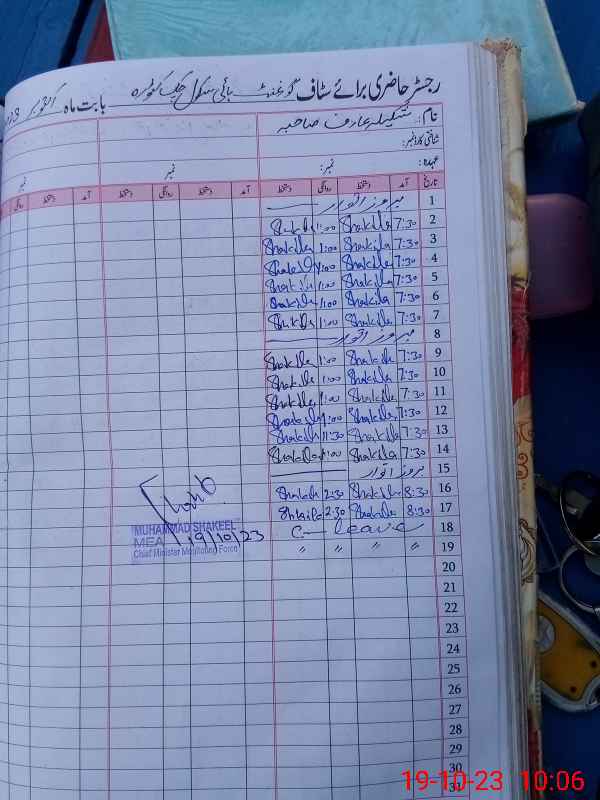 رجسٹر حاضری برائے سٹاف گورنمنٹ ہائی سکول چک بابت ماہ اکتوبر
نام: شکیلہ عارف صاحبہ
شناختی کارڈ نمبر:
عہدہ: نمبر: نمبر نمبر
تاریخ آمد دستخط روانگی دستخط آمد دستخط روانگی دستخط آمد دستخط
1 بروز اتوار
2 7:30 Shakila 1:00 Shakila
3 7:30 Shakila 1:00 Shakila
4 7:30 Shakila 1:00 Shakila
5 7:30 Shakila 1:00 Shakila
6 7:30 Shakila 1:00 Shakila
7 7:30 Shakila 1:00 Shakila
8 بروز اتوار
9 7:30 Shakila 1:00 Shakila
10 7:30 Shakila 1:00 Shakila
11 7:30 Shakila 1:00 Shakila
12 7:30 Shakila 1:00 Shakila
13 7:30 Shakila 11:30 Shakila
14 7:30 Shakila 1:00 Shakila
15 بروز اتوار
16 8:30 Shakila 2:30 Shakila
17 8:30 Shakila 2:30 Shakila
18 C-Leave
19 " " " "
MUHAMMAD SHAKEEL
MEA 19/10/23
Chief Minister Monitoring Force
20
21
22
23
24
25
26
27
28
29
30
31
19-10-23 10:06